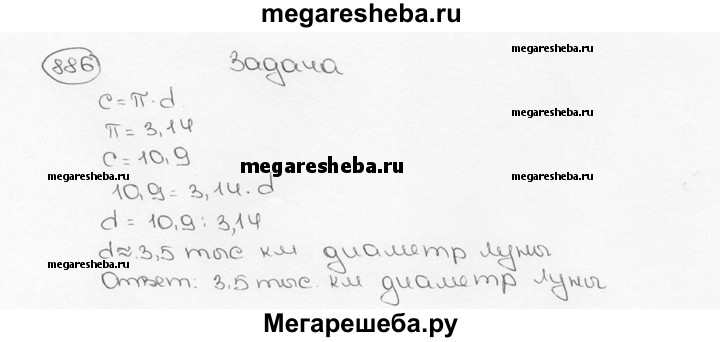 megaresheba.ru
886 Задача megaresheba.ru
C = π · d
megaresheba.ru
π = 3,14
C = 10,9
megaresheba.ru megaresheba.ru megaresheba.ru
10,9 = 3,14 · d
d = 10,9 : 3,14
d ≈ 3,5 тыс км диаметр луны
megaresheba.ru megaresheba.ru
Ответ: 3,5 тыс. км диаметр луны
Мегарешеба.ру